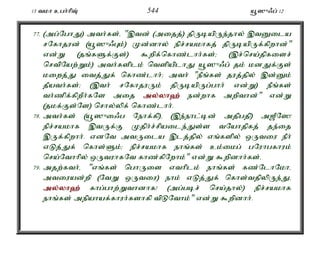 13 வமா உபர்ரிஉ 544 யூஸுஃப் 12
77. (அப்போது) அவர்கள், "இவன் (அதைத்) திருடியிருந்தால் இவனுடைய
சகோதரன் (யூஸுஃபும்) முன்னால் நிச்சயமாகத் திருடியிருக்கிறான்"
என்று (தங்களுக்குள்) கூறிக்கொண்டார்கள்; (இச்செய்திகளைச்
செவியேற்றும்) அவர்களிடம் வெளியிடாது யூஸுஃப் தம் மனதுக்குள்
மறைத்து வைத்துக் கொண்டார்; அவர் "நீங்கள் தரத்தில் இன்னும்
தீயவர்கள்; (இவர் சகோதரரும் திருடியிருப்பார் என்று) நீங்கள்
வர்ணிக்கிறீர்களே அதை அல்லாஹ் நன்றாக அறிவான்" என்று
(தமக்குள்ளே) சொல்லிக் கொண்டார்.
78. அவர்கள் (யூஸுஃபை நோக்கி), (இந்நாட்டின் அதிபதி) அஜீஸே!
நிச்சயமாக இவருக்கு முதிர்ச்சியடைந்துள்ள வயோதிகத் தந்தை
இருக்கிறார். எனவே அவருடைய இடத்தில் எங்களில் ஒருவரை நீர்
எடுத்துக் கொள்ளும்; நிச்சயமாக நாங்கள் உம்மைப் பரோபகாரம்
செய்வோரில் ஒருவராகவே காண்கிறோம்" என்று கூறினார்கள்.
79. அதற்கவர், "எங்கள் பொருளை எவரிடம் நாங்கள் கண்டோமோ,
அவரையன்றி (வேறு ஒருவரை) நாம் எடுத்துக் கொள்வதிலிருந்து,
அல்லாஹ் காப்பாற்றுவானாக! (அப்படிச் செய்தால்) நிச்சயமாக
நாங்கள் அநியாயக்காரர்களாகி விடுவோம்" என்று கூறினார்.